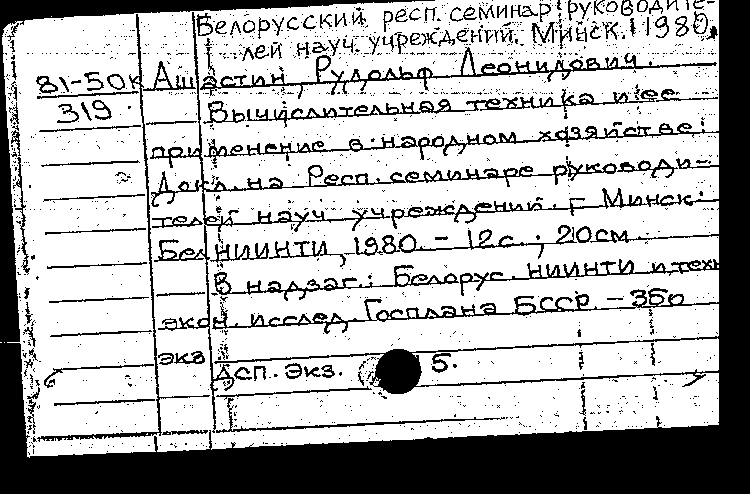 Белорусский респ. семинар руководите-
лей науч. учреждений. Минск. 1980.
81-50к Ашастин, Рудольф Леонидович.
319. Вычислительная техника и ее
применение в народном хозяйстве:
Докл. на Респ. семинаре руководи-
телей науч. учреждений. - Минск:
БелНИИНТИ, 1980. - 12 с.; 20 см.
В надзаг.: Белорус. НИИНТИ и техн
экон. исслед. Госплана БССР. - 35р
экз
ДСП. Экз. 5.